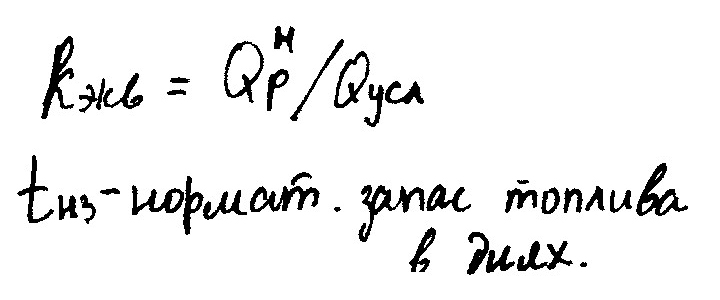 kэкв = Qрᴴ/Qусл
tнз - нормат. запас топлива
в днях.